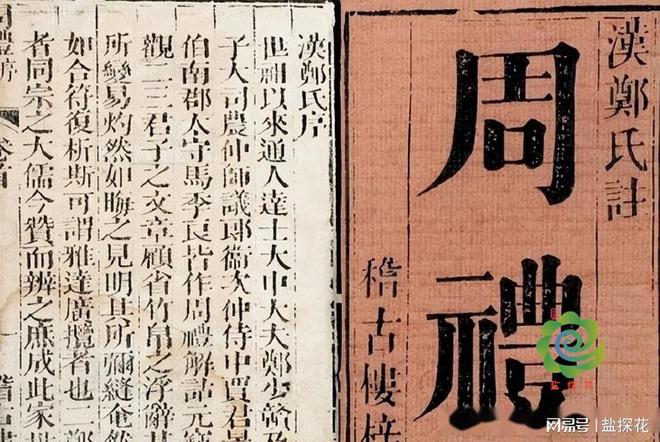 漢鄭氏註
周禮
稽古樓梓
漢鄭氏序
世祖以來通人達士大中大夫鄭少贛及
子大司農仲師議郎衞次仲侍中賈君景
伯南郡太守馬季長皆作周禮解詁元竊
觀二三君子之文章顧省竹帛之浮辭其
所變易灼然如晦之見明其所彌縫奄然
如合符復析斯可謂雅達廣攬者也二鄭
者同宗之大儒今贊而辨之庶成此家
卷首
一
網易號 | 盐探花